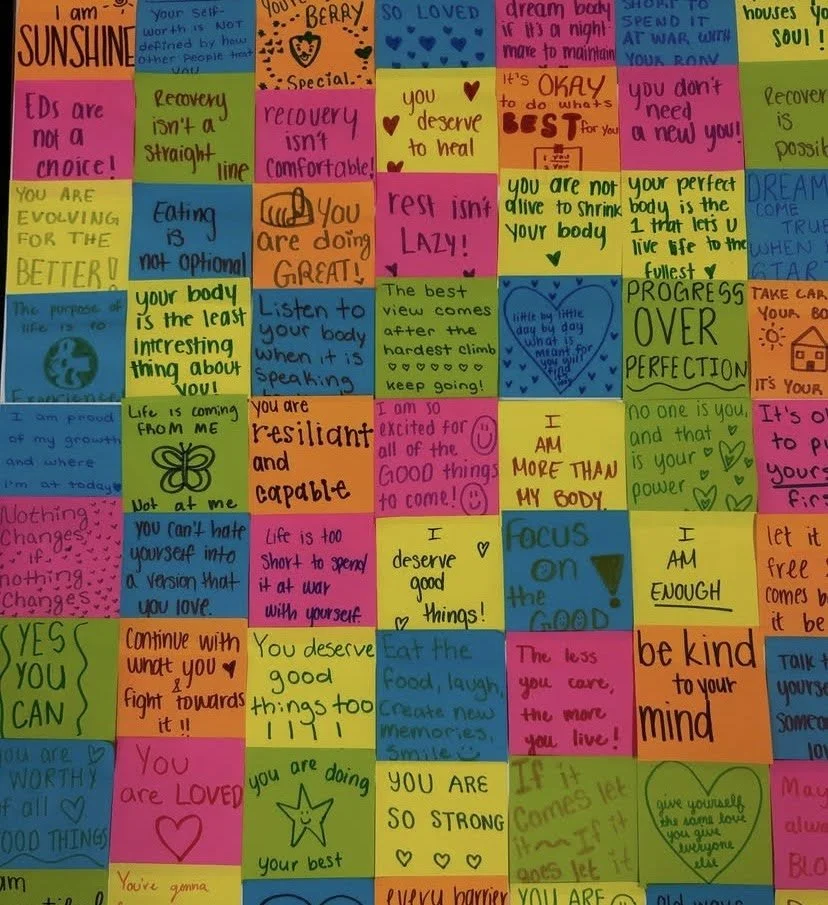 I am
SUNSHINE
Your self-
worth is NOT
defined by how
other people
you're
BERRY
Special.
SO LOVED
dream body
if it's a night-
mare to maintain
SHORT TO
SPEND IT
AT WAR WITH
YOUR BODY
houses
SOUL!
EDs are
not a
choice!
Recovery
isn't a
straight
line
recovery
isn't
comfortable!
you
deserve
to heal
it's OKAY
to do whats
BEST for you
you don't
need
a new you!
Recovery
is
YOU ARE
EVOLVING
FOR THE
BETTER!
Eating
is
not optional
YOU
are doing
GREAT!
rest isn't
LAZY!
you are not
alive to shrink
your body
your perfect
body is the
1 that lets u
live life to the
fullest
DREAMS
COME
TRUE
WHEN
The purpose of
life is to
your body
is the least
interesting
thing about
you!
Listen to
your body
when it is
speaking
The best
view comes
after the
hardest climb
keep going!
little by little
day by day
what is
meant for
you will
find
PROGRESS
OVER
PERFECTION
TAKE
YOUR
IT'S YOUR
I am proud
of my growth
and where
i'm at today
Life is coming
FROM ME
Not at me
you are
resiliant
and
capable
I am so
excited for
all of the
GOOD things
to come!
I
AM
MORE THAN
MY BODY.
no one is you,
and that
is your
power
It's
to
Nothing
Changes
if
nothing
Changes
you can't hate
yourself into
a version that
you love.
Life is too
short to spend
it at war
with yourself.
I
deserve
good
things!
Focus
on
the
GOOD!
I
AM
ENOUGH
let it
free
comes
it be
YES
YOU
CAN
Continue with
what you
&
fight towards
it !!
You deserve
good
things too
! ! ! !
Eat the
food, laugh,
Create new
memories,
Smile
The less
you care,
the more
you live!
be kind
to your
mind
Talk
you are
WORTHY
of all
GOOD THINGS
You
are LOVED
you are doing
your best
YOU ARE
SO STRONG
If it
Comes let
it ~ If it
goes let it
give yourself
the same love
you give
everyone
else
You've gonna
every barrier
YOU ARE
old ways